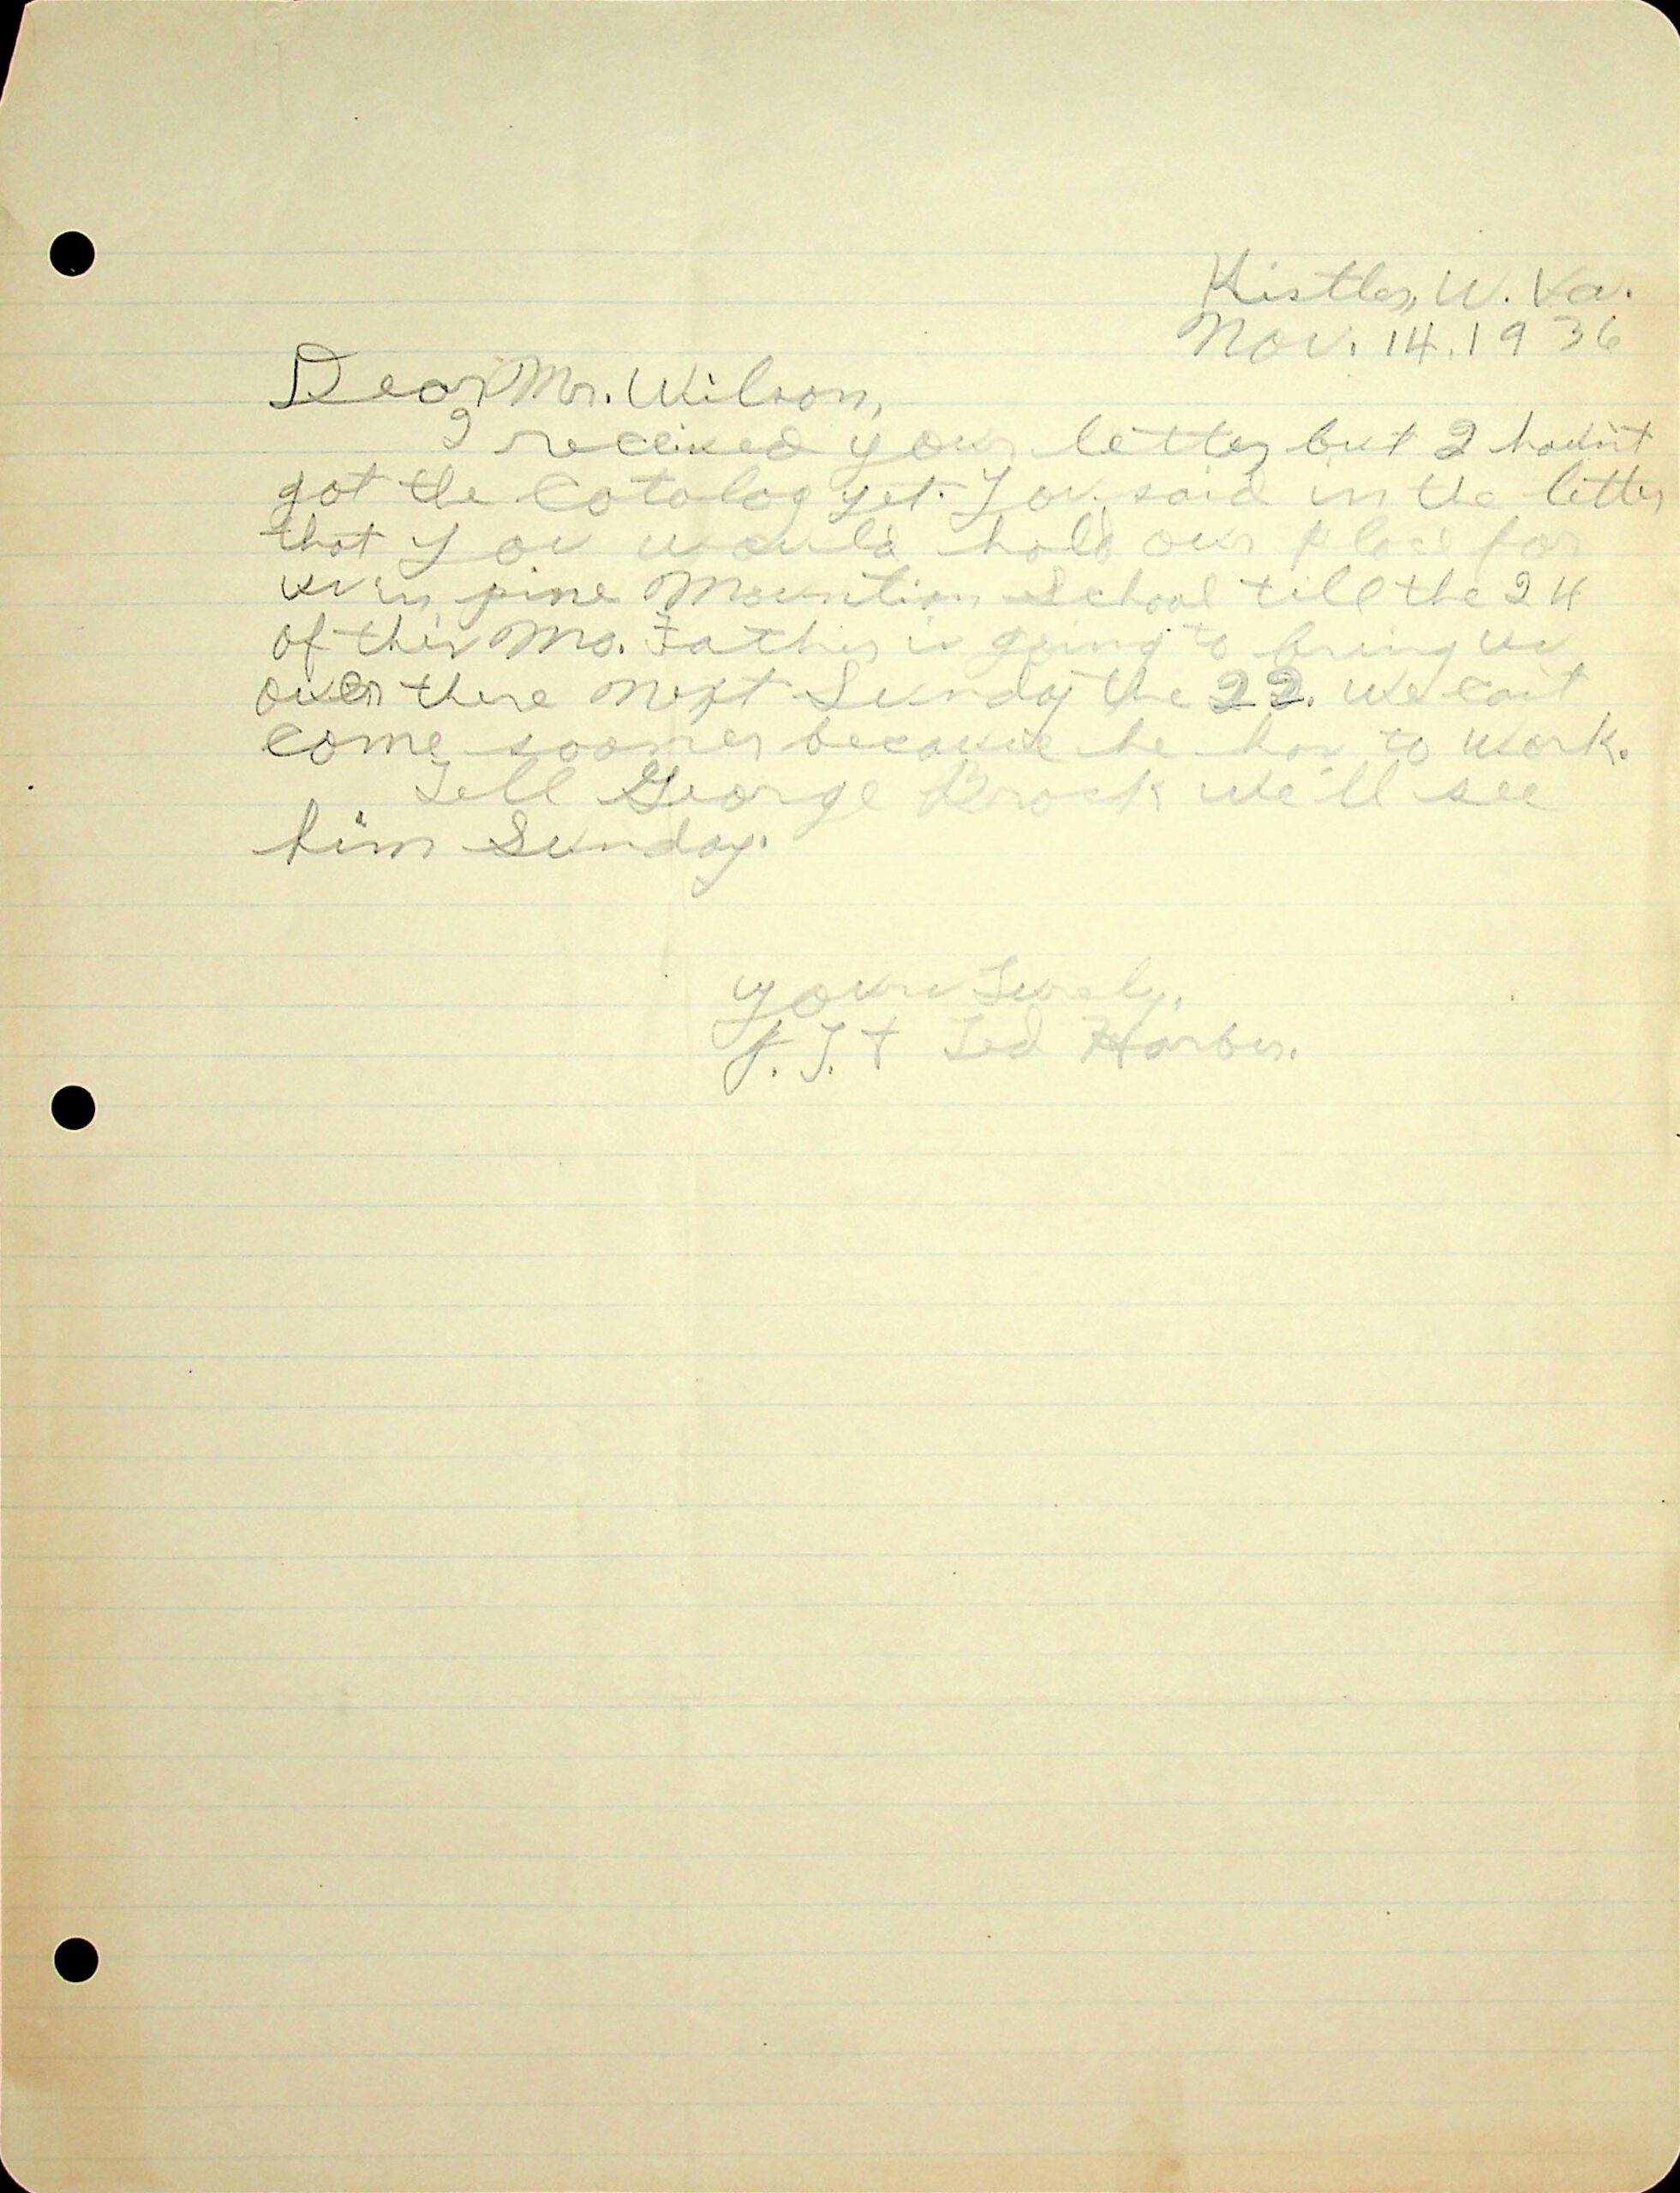 Kistler, W. Va.
Nov. 14, 1936
Dear Mr. Wilson,
I received your letter but I havn't
got the Catolog yet. You said in the letter
that you would hold our place for
us in pine Mountian School till the 24
of this Mo. Father is going to bring us
over there next Sunday the 22. We cait
come sooner because he has to work.
Tell George Brock we'll see
him Sunday.
yours Turely,
J. T. + Ted Harber.